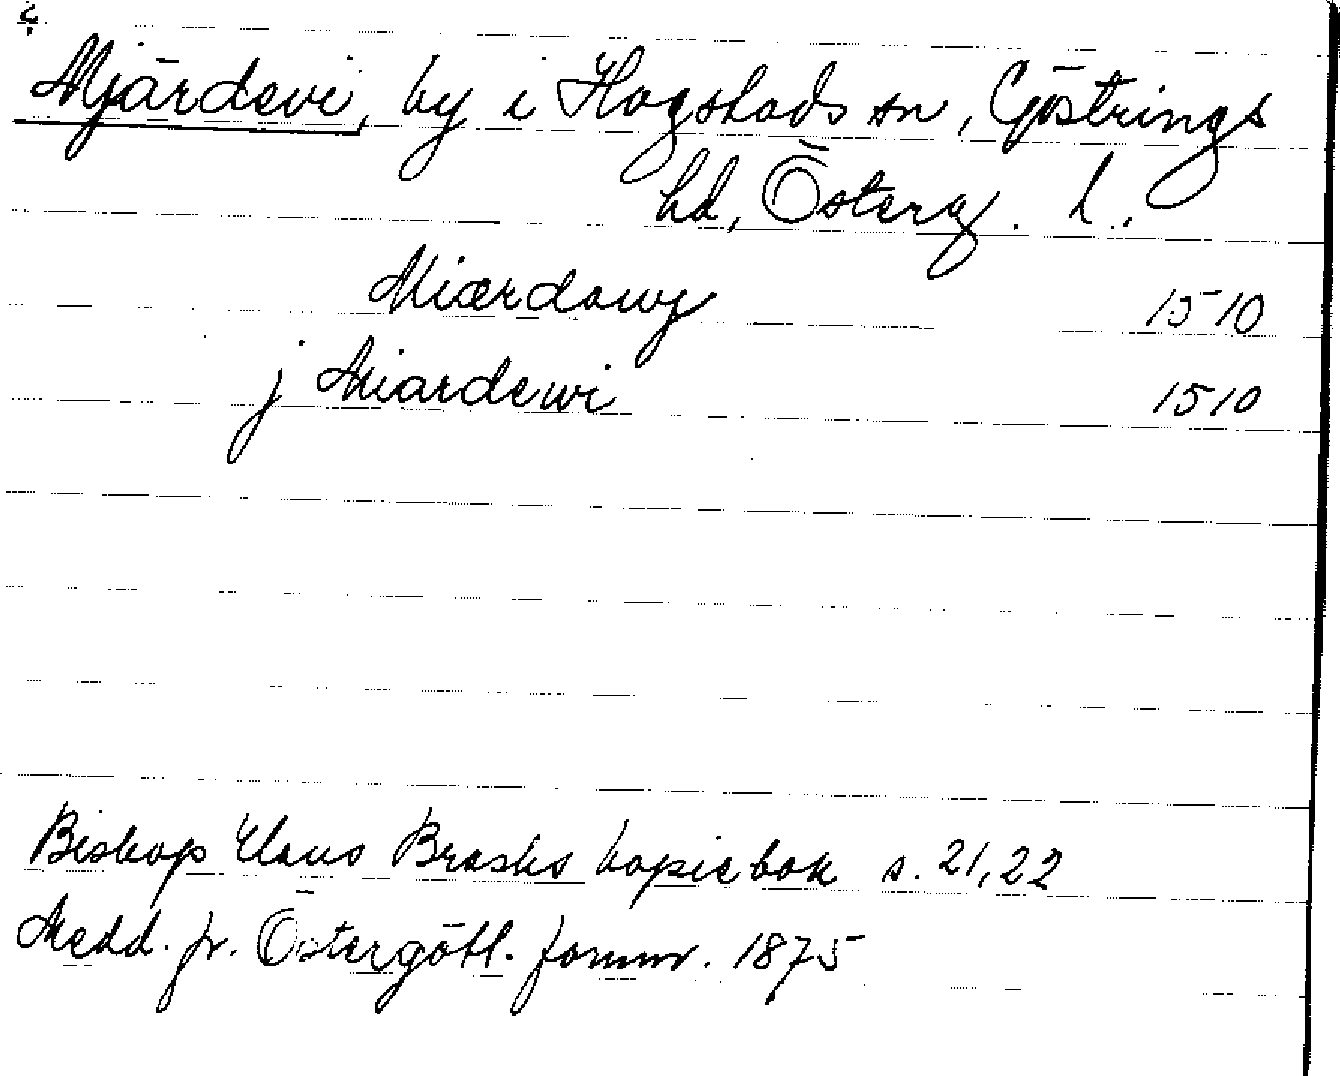 Mjärdevi, by i Hogstads sn, Göstrings
hd, Österg. l.
Miærdowy 1510
j Miardewi 1510
Biskop Claus Brasks kopiebok s. 21, 22
Medd. fr. Östergötl. fornm. 1875